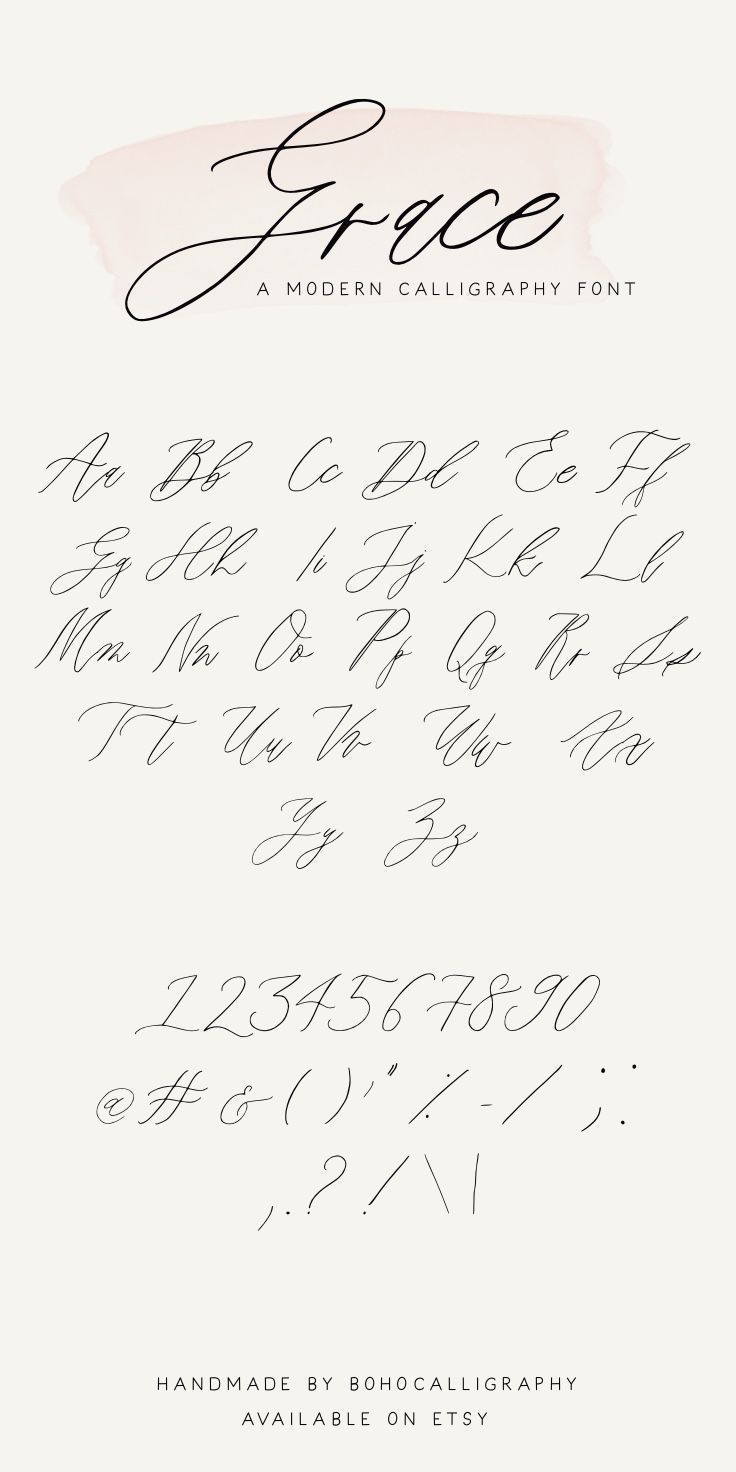 Grace
A MODERN CALLIGRAPHY FONT
Aa Bb Cc Dd Ee Ff
Gg Hh Ii Jj Kk Ll
Mm Nn Oo Pp Qq Rr Ss
Tt Uu Vv Ww Xx
Yy Zz
1234567890
@ # & ( ) ' " % - / ; :
, . ? ! \ |
HANDMADE BY BOHOCALLIGRAPHY
AVAILABLE ON ETSY